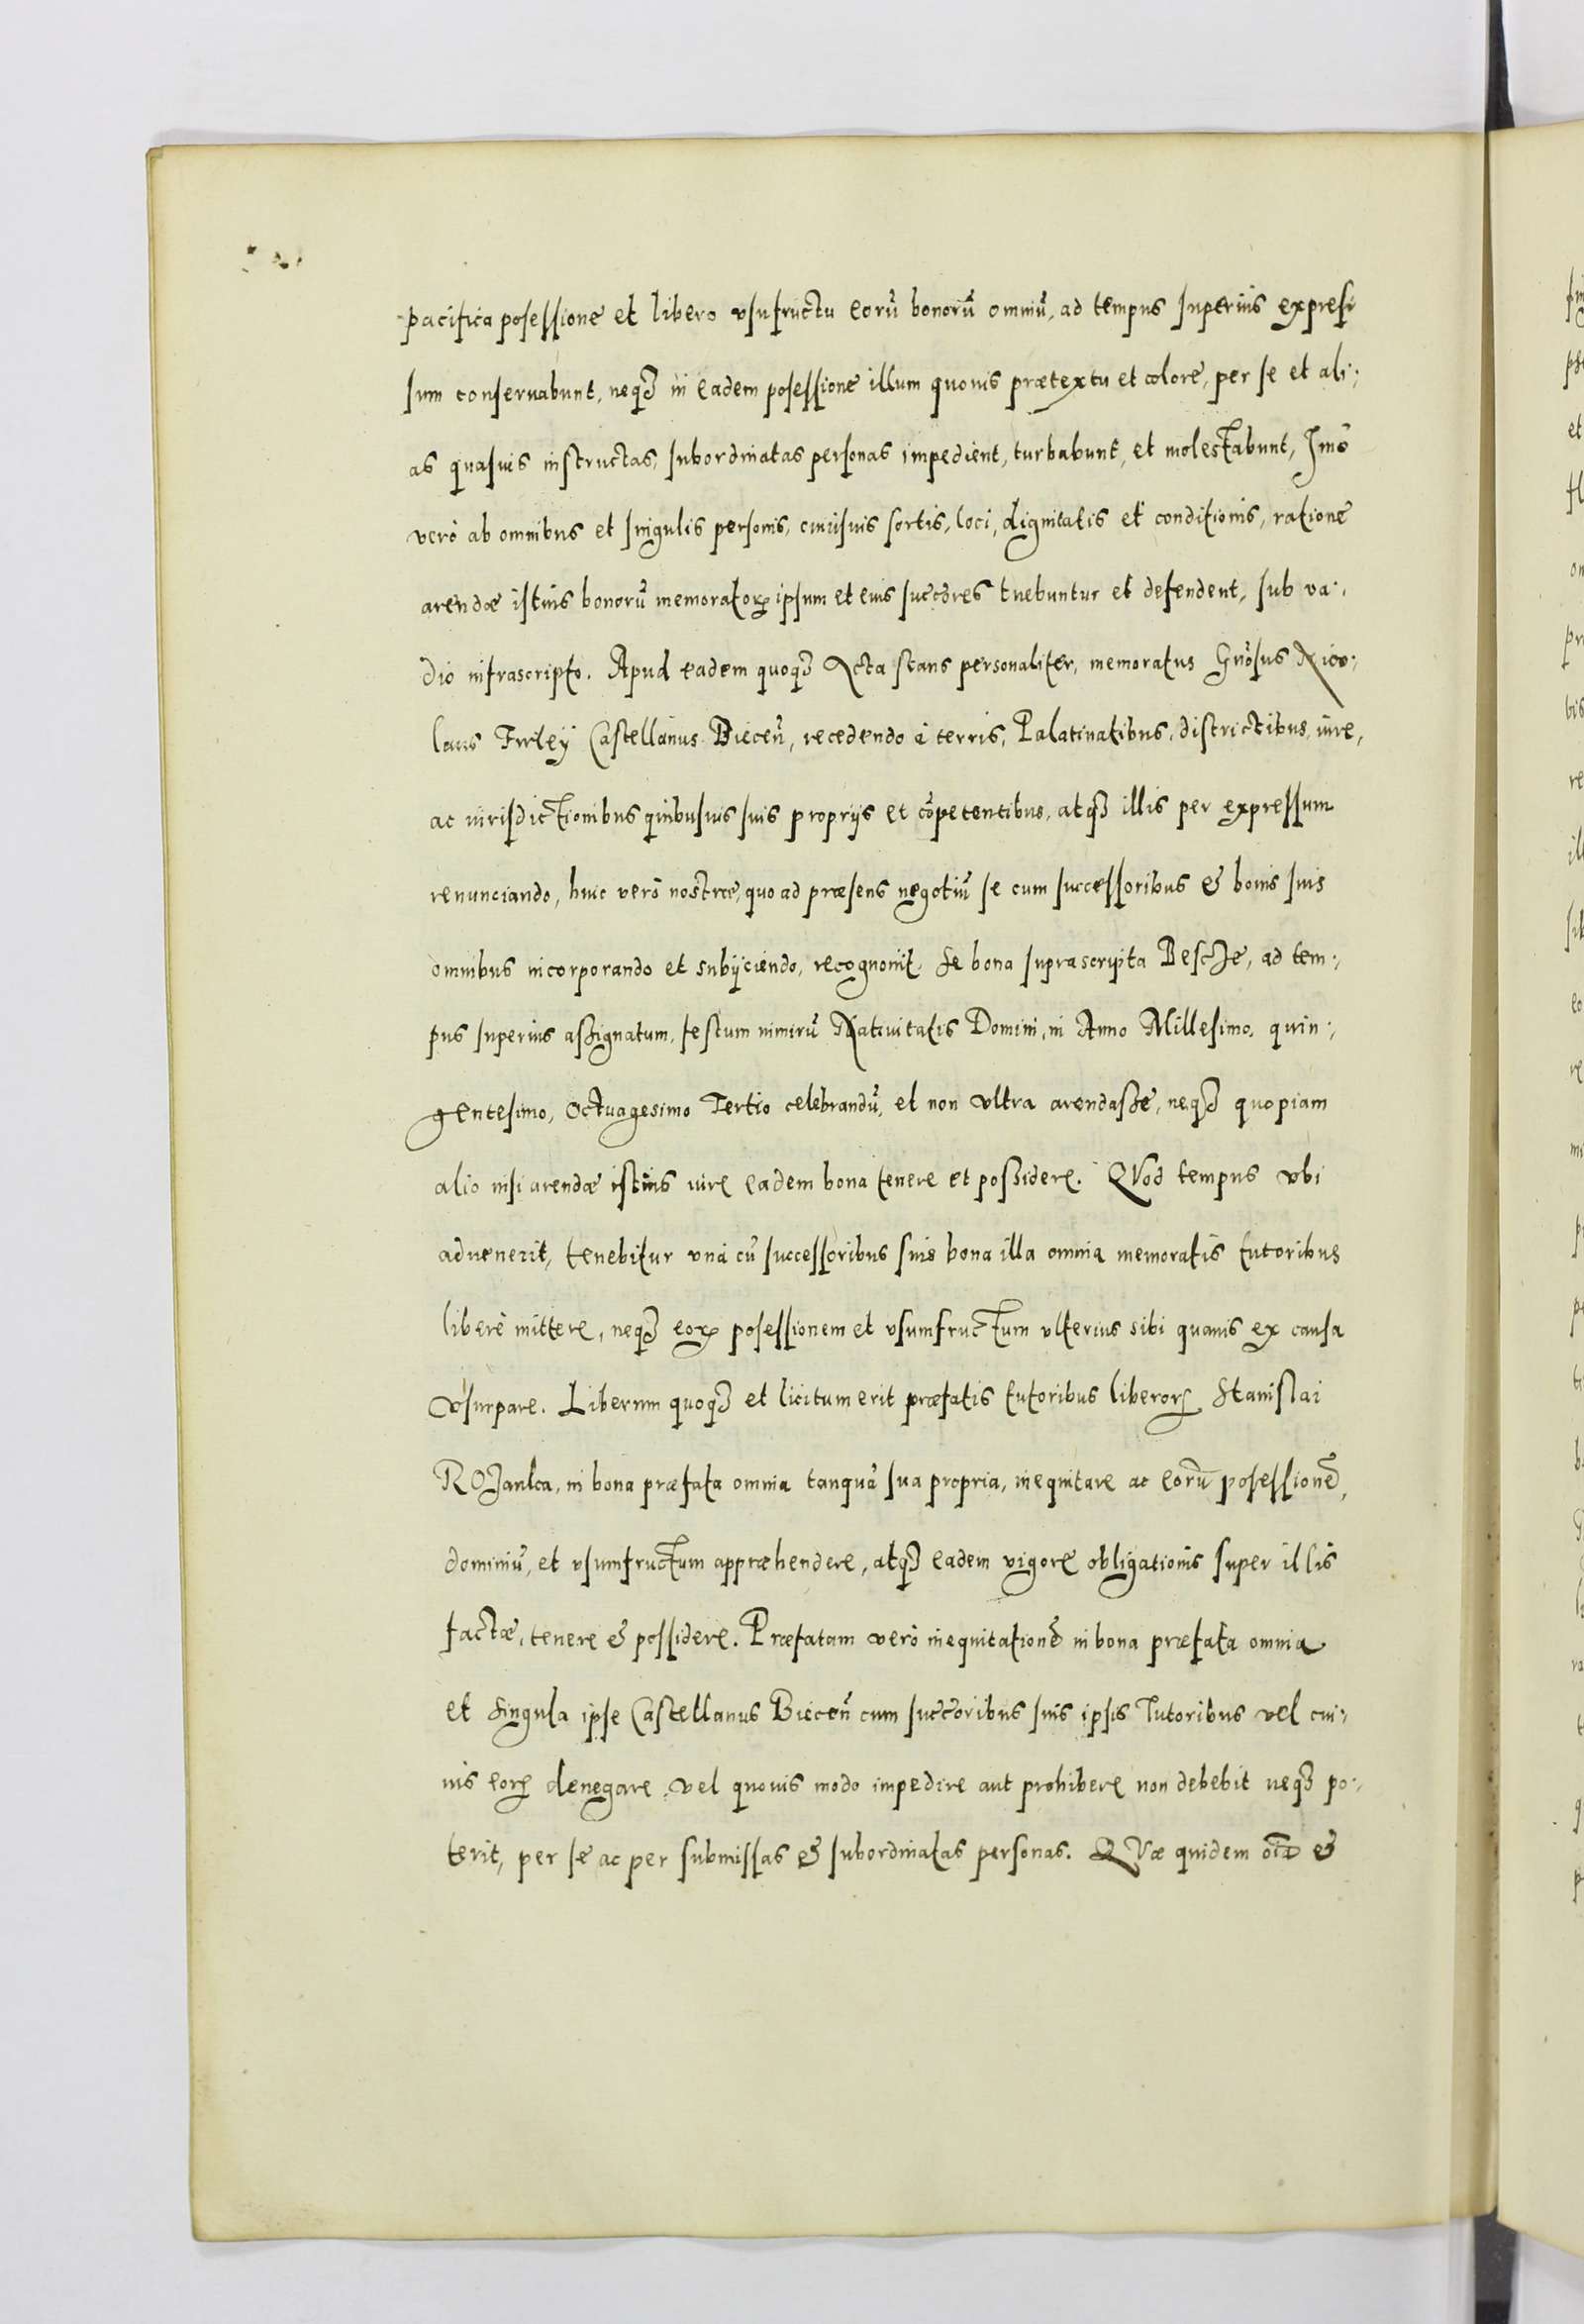 pacifica posessione et libero vsufructu eorū bonorū omniū, ad tempus superius expres:
sum conseruabunt, neqꝫ in eadem posessione illum quouis prætextu et colore, per se et ali:
as quasuis instructas, subordinatas personas impedient, turbabunt, et molestabunt, Imò
verò ab omnibus et singulis personis, cuiusuis sortis, loci, dignitatis et conditionis, ratione
arendæ istius bonorū memoratoꝝ ipsum et eius succ̄ores tuebuntur et defendent, sub va:
dio infrascripto. Apud eadem quoqꝫ Acta stans personaliter, memoratus Gn̄osus Nico:
laus Firley Castellanus Biecen̄, recedendo à terris, Palatinatibus, districtibus, iure,
ac iurisdictionibus quibusuis suis proprijs et cōpetentibus, atqꝫ illis per expressum
renunciando, huic verò nostræ, quo ad præsens negotiū se cum successoribus & bonis suis
omnibus incorporando et subijciendo, recognouit se bona suprascripta Beszcze, ad tem:
pus superius assignatum, festum nimirū Natiuitatis Domini, in Anno Millesimo, quin:
gentesimo, Octuagesimo Tertio celebrandū, et non vltra arendasse, neqꝫ quopiam
alio nisi arendæ istius iure eadem bona tenere et possidere. QVod tempus vbi
aduenerit, tenebitur vnà cū successoribus suis bona illa omnia memoratis tutoribus
liberè mittere, neqꝫ eoꝝ posessionem et vsumfructum vlterius sibi quauis ex causa
vsurpare. Liberum quoqꝫ et licitum erit præfatis tutoribus liberoꝝ Stanislai
ROZanka, in bona præfata omnia tanquā sua propria, inequitare ac eorū posessionē,
dominiū, et vsumfructum appræhendere, atqꝫ eadem vigore obligationis super illis
factæ, tenere & possidere. Præfatam verò inequitationē in bona præfata omnia
et singula ipse Castellanus Biecen̄ cum succ̄oribus suis ipsis Tutoribus vel cui:
uis eoꝝ denegare, vel quouis modo impedire aut prohibere non debebit neqꝫ po:
terit, per se ac per submissas & subordinatas personas. QVæ quidem oīa &